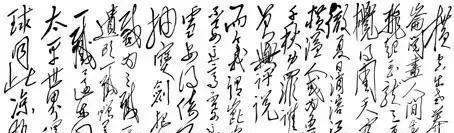 横空出世莽
崑崙阅尽人间春
飞起玉龙三百
搅得周天寒
彻夏日消溶江
横溢人或为鱼
千秋功罪谁
人曾与评说
而今我谓崑
崙不要这高不要
雪安得倚天
抽宝剑把
裁为三截
遗欧一截赠
一截还东
太平世界环
球同此凉